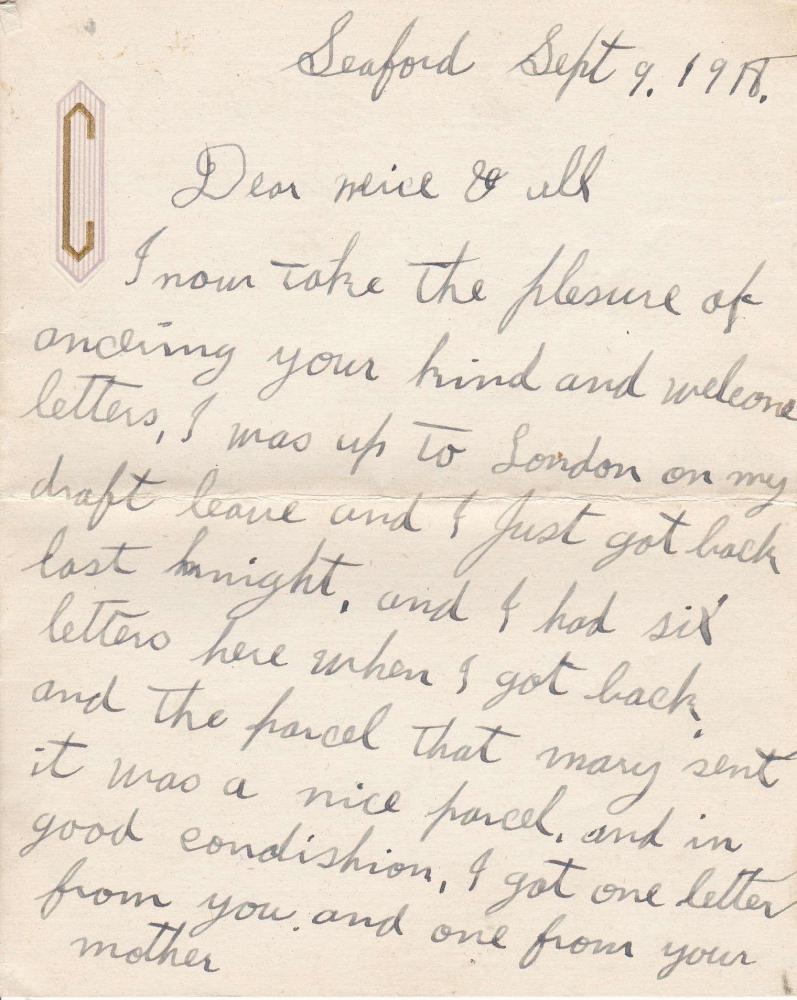 Seaford Sept 9. 1918.
C
Dear neice & all
I now take the plesure of
ancering your kind and welcome
letters, I was up to London on my
draft leave and I Just got back
last knight, and I had six
letters here when I got back,
and the parcel that mary sent
it was a nice parcel, and in
good condishion, I got one letter
from you. and one from your
mother